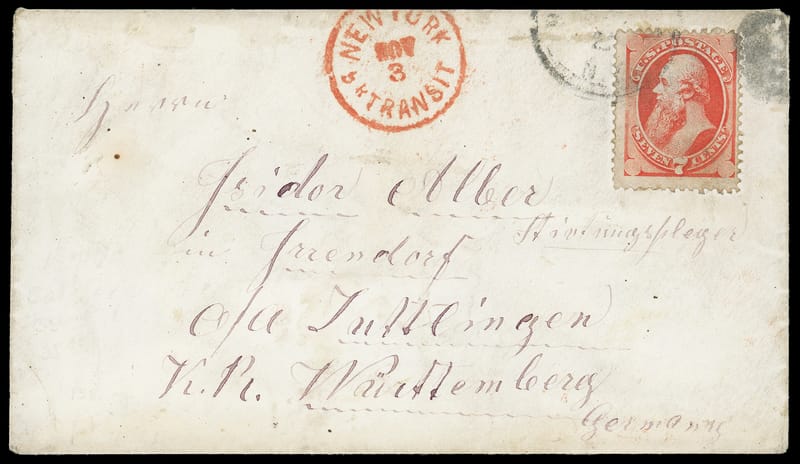 NEW YORK
NOV
3
TRANSIT
U.S. POSTAGE
SEVEN 7 CENTS
Herrn
Isidor Alber
Stiftungspfleger
in Irrendorf
o/a Tuttlingen
K. R. Württemberg
Germany